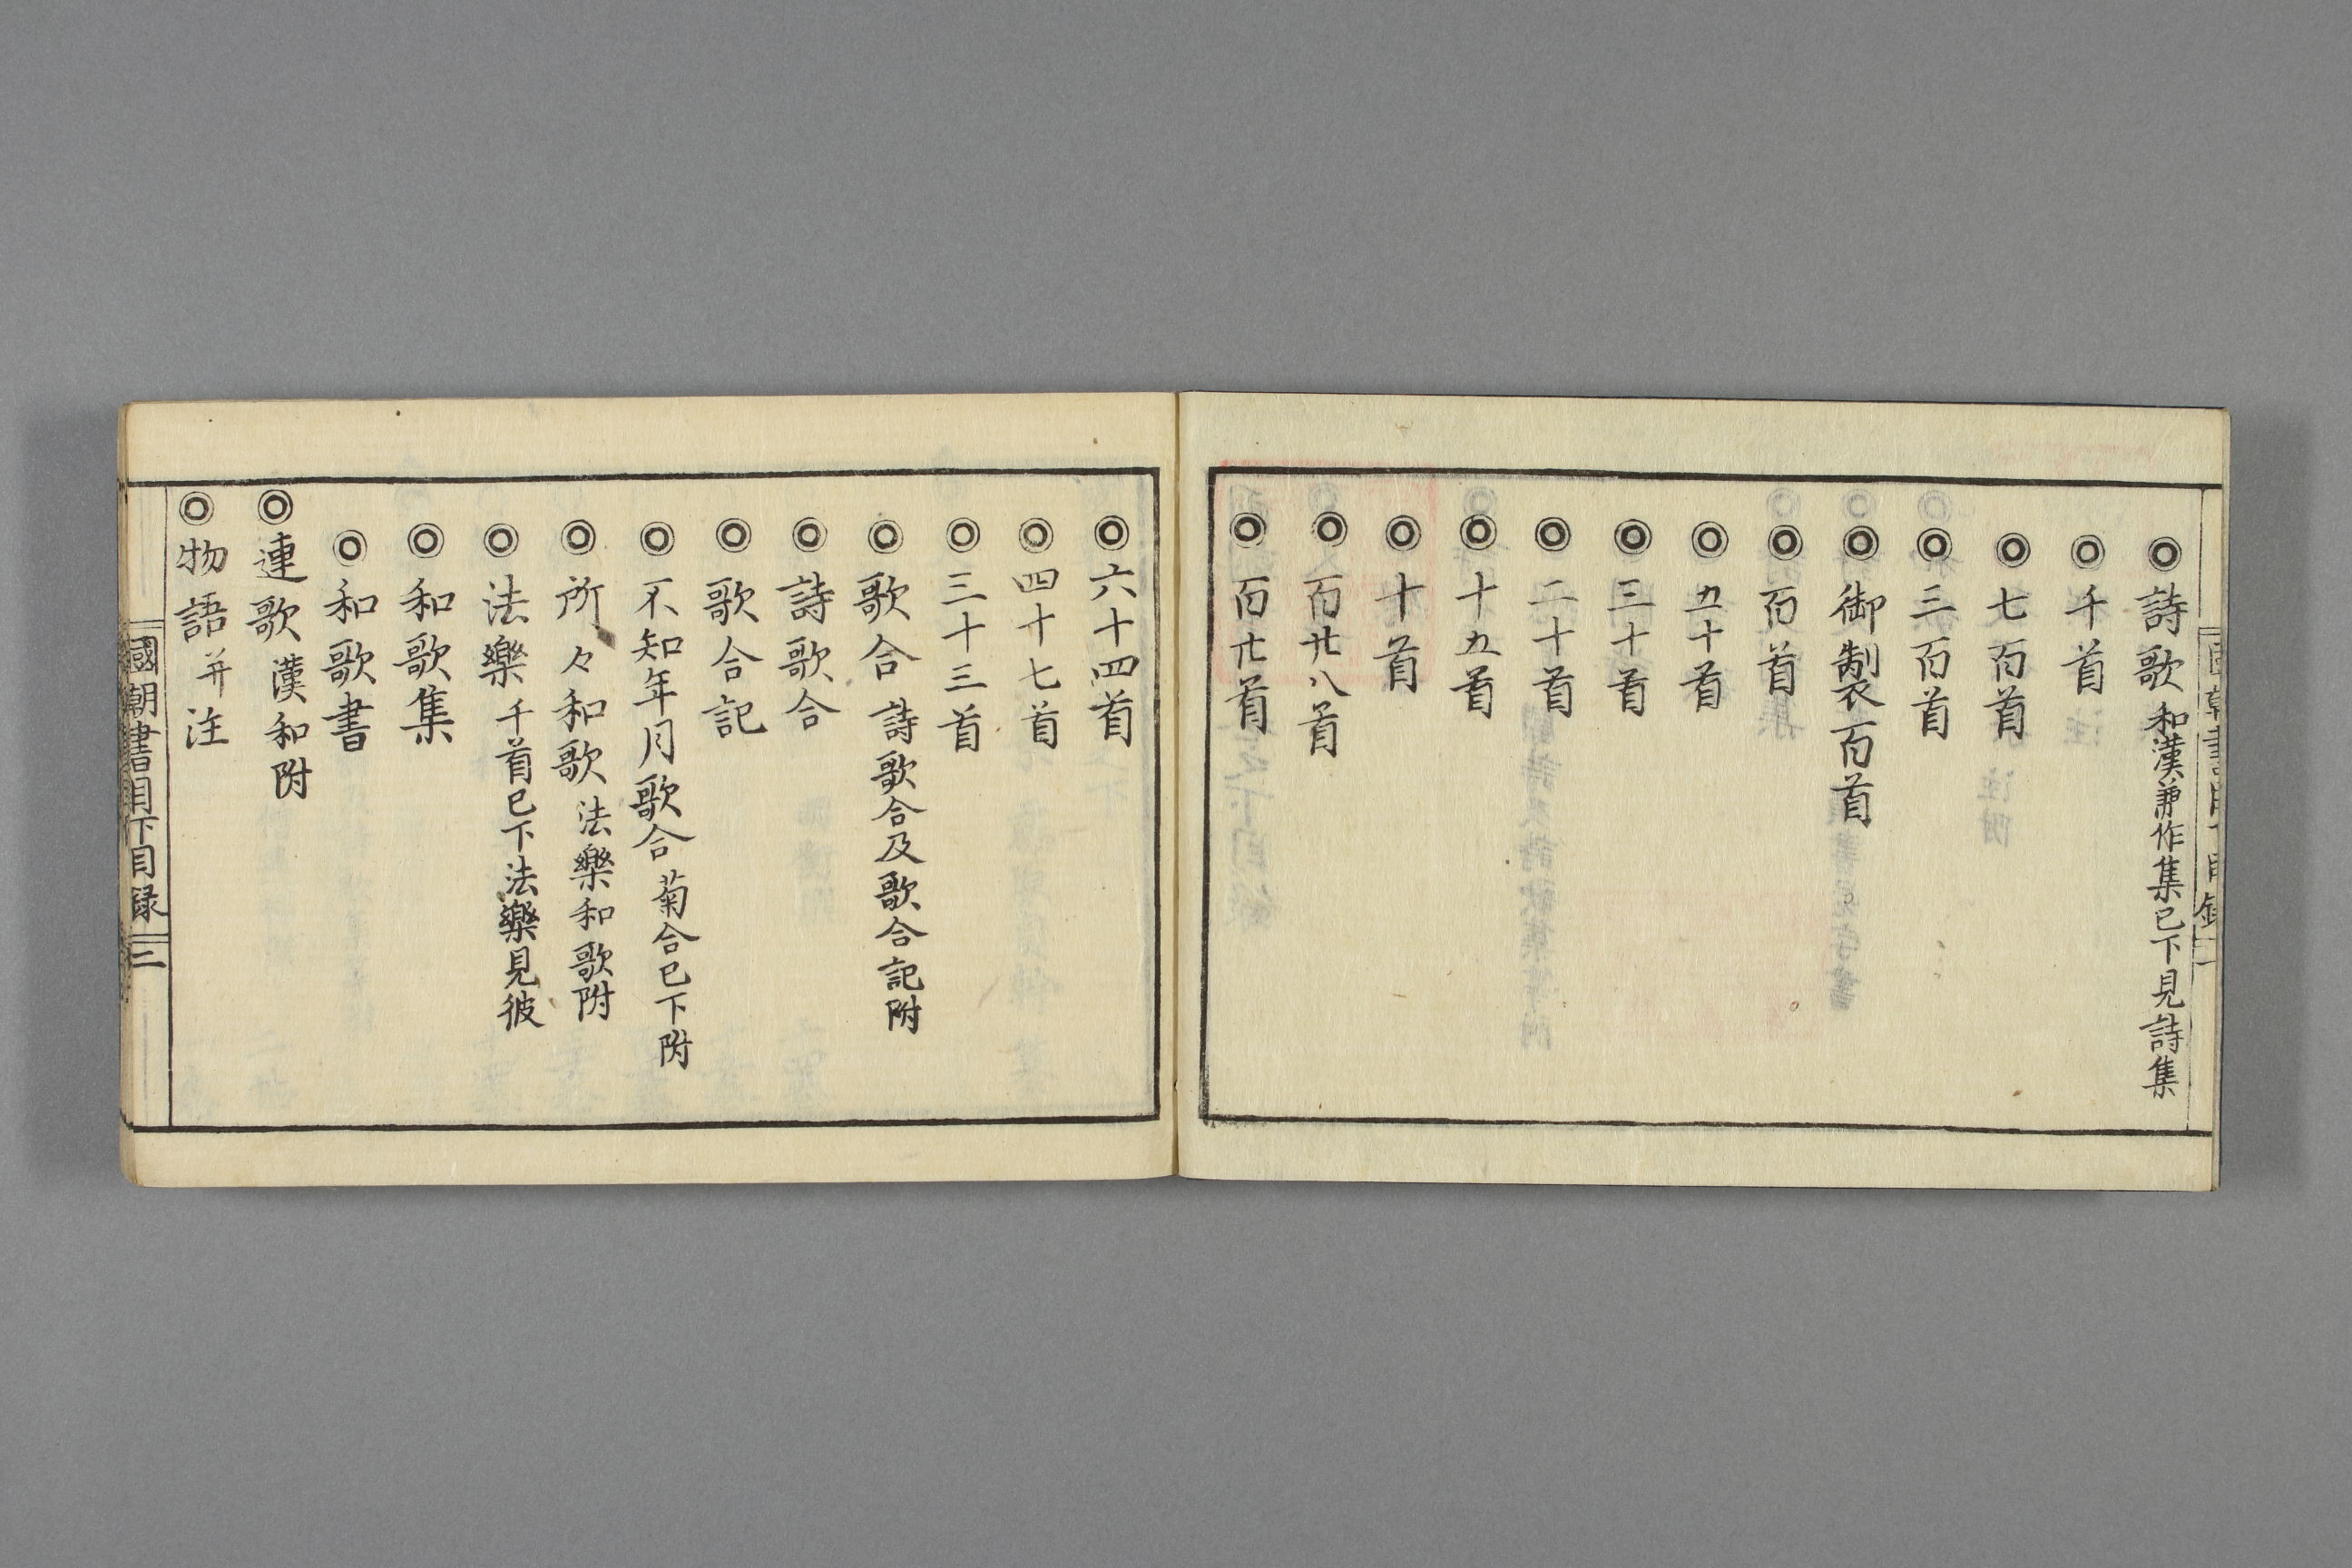 ◎詩歌 和漢兼作集已下見詩集
◎千首
◎七百首
◎三百首
◎御製百首
◎百首
◎五十首
◎三十首
◎二十首
◎十五首
◎十首
◎百廿八首
◎百廿首
◎六十四首
◎四十七首
◎三十三首
◎歌合 詩歌合及歌合記附
◎詩歌合
◎歌合記
◎不知年月歌合 菊合已下附
◎所々和歌 法樂和歌附
◎法樂 千首已下法樂見彼
◎和歌集
◎和歌書
◎連歌 漢和附
◎物語并注
國朝書目下目録 三